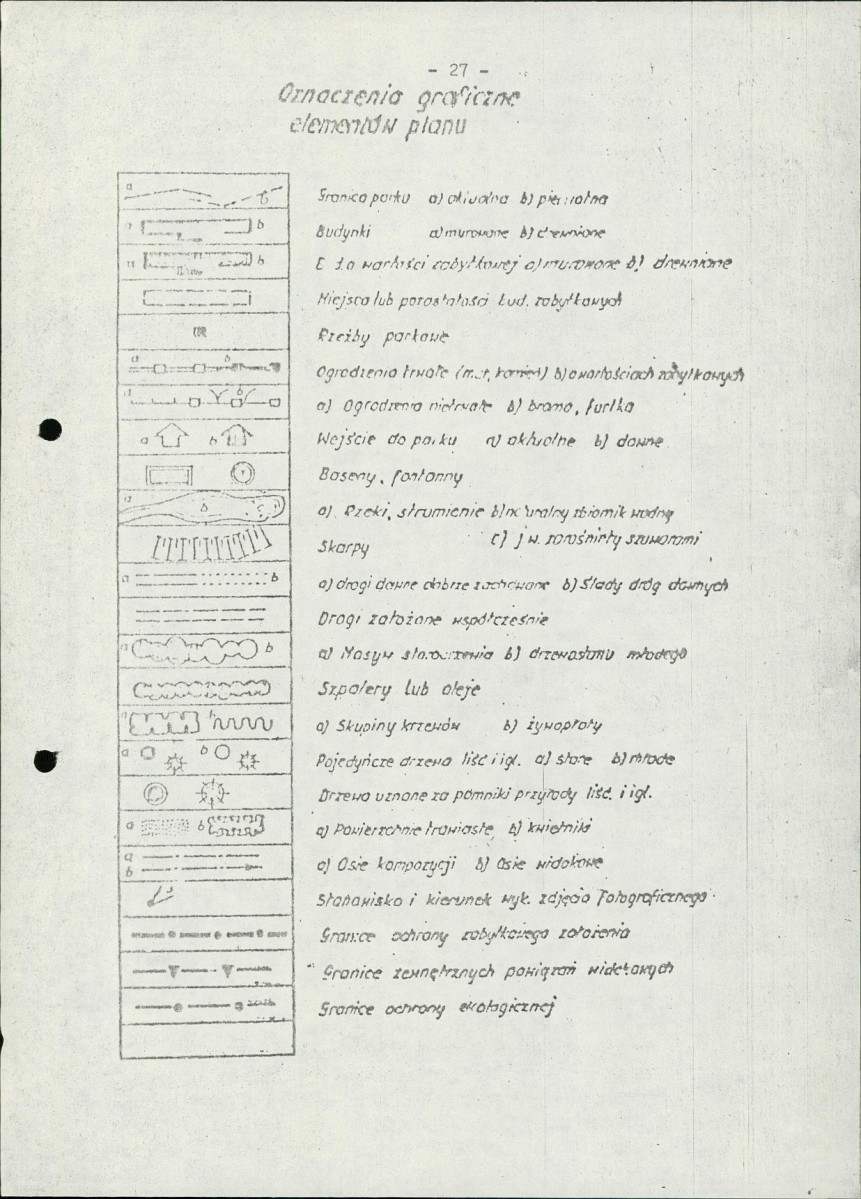 - 27 -
Oznaczenia graficzne
elementów planu
Granica parku a) aktualna b) pierwotna
Budynki a) murowane b) drewniane
o wartości zabytkowej a) murowane b) drewniane
Miejsca lub pozostałości bud. zabytkowych
Rzeźby parkowe
Ogrodzenia trwałe (mur, kamień) b) o wartościach zabytkowych
a) Ogrodzenia nietrwałe b) brama, furtka
Wejście do parku a) aktualne b) dawne
Baseny, fontanny
a) Rzeki, strumienie b) naturalny zbiornik wodny
c) j.w. zarośnięty szuwarami
Skarpy
a) drogi dawne dobrze zachowane b) Ślady dróg dawnych
Drogi założone współcześnie
a) Masyw starodrzewia b) drzewostanu młodego
Szpalery lub aleje
a) Skupiny krzewów b) żywopłoty
Pojedyńcze drzewa liść i igl. a) stare b) młode
Drzewa uznane za pomniki przyrody liść. i igl.
a) Powierzchnie trawiaste b) kwietniki
a) Osie kompozycji b) Osie widokowe
Stanowisko i kierunek wyk. zdjęcia fotograficznego
Granice ochrony zabytkowego założenia
Granice zewnętrznych powiązań widokowych
Granice ochrony ekologicznej